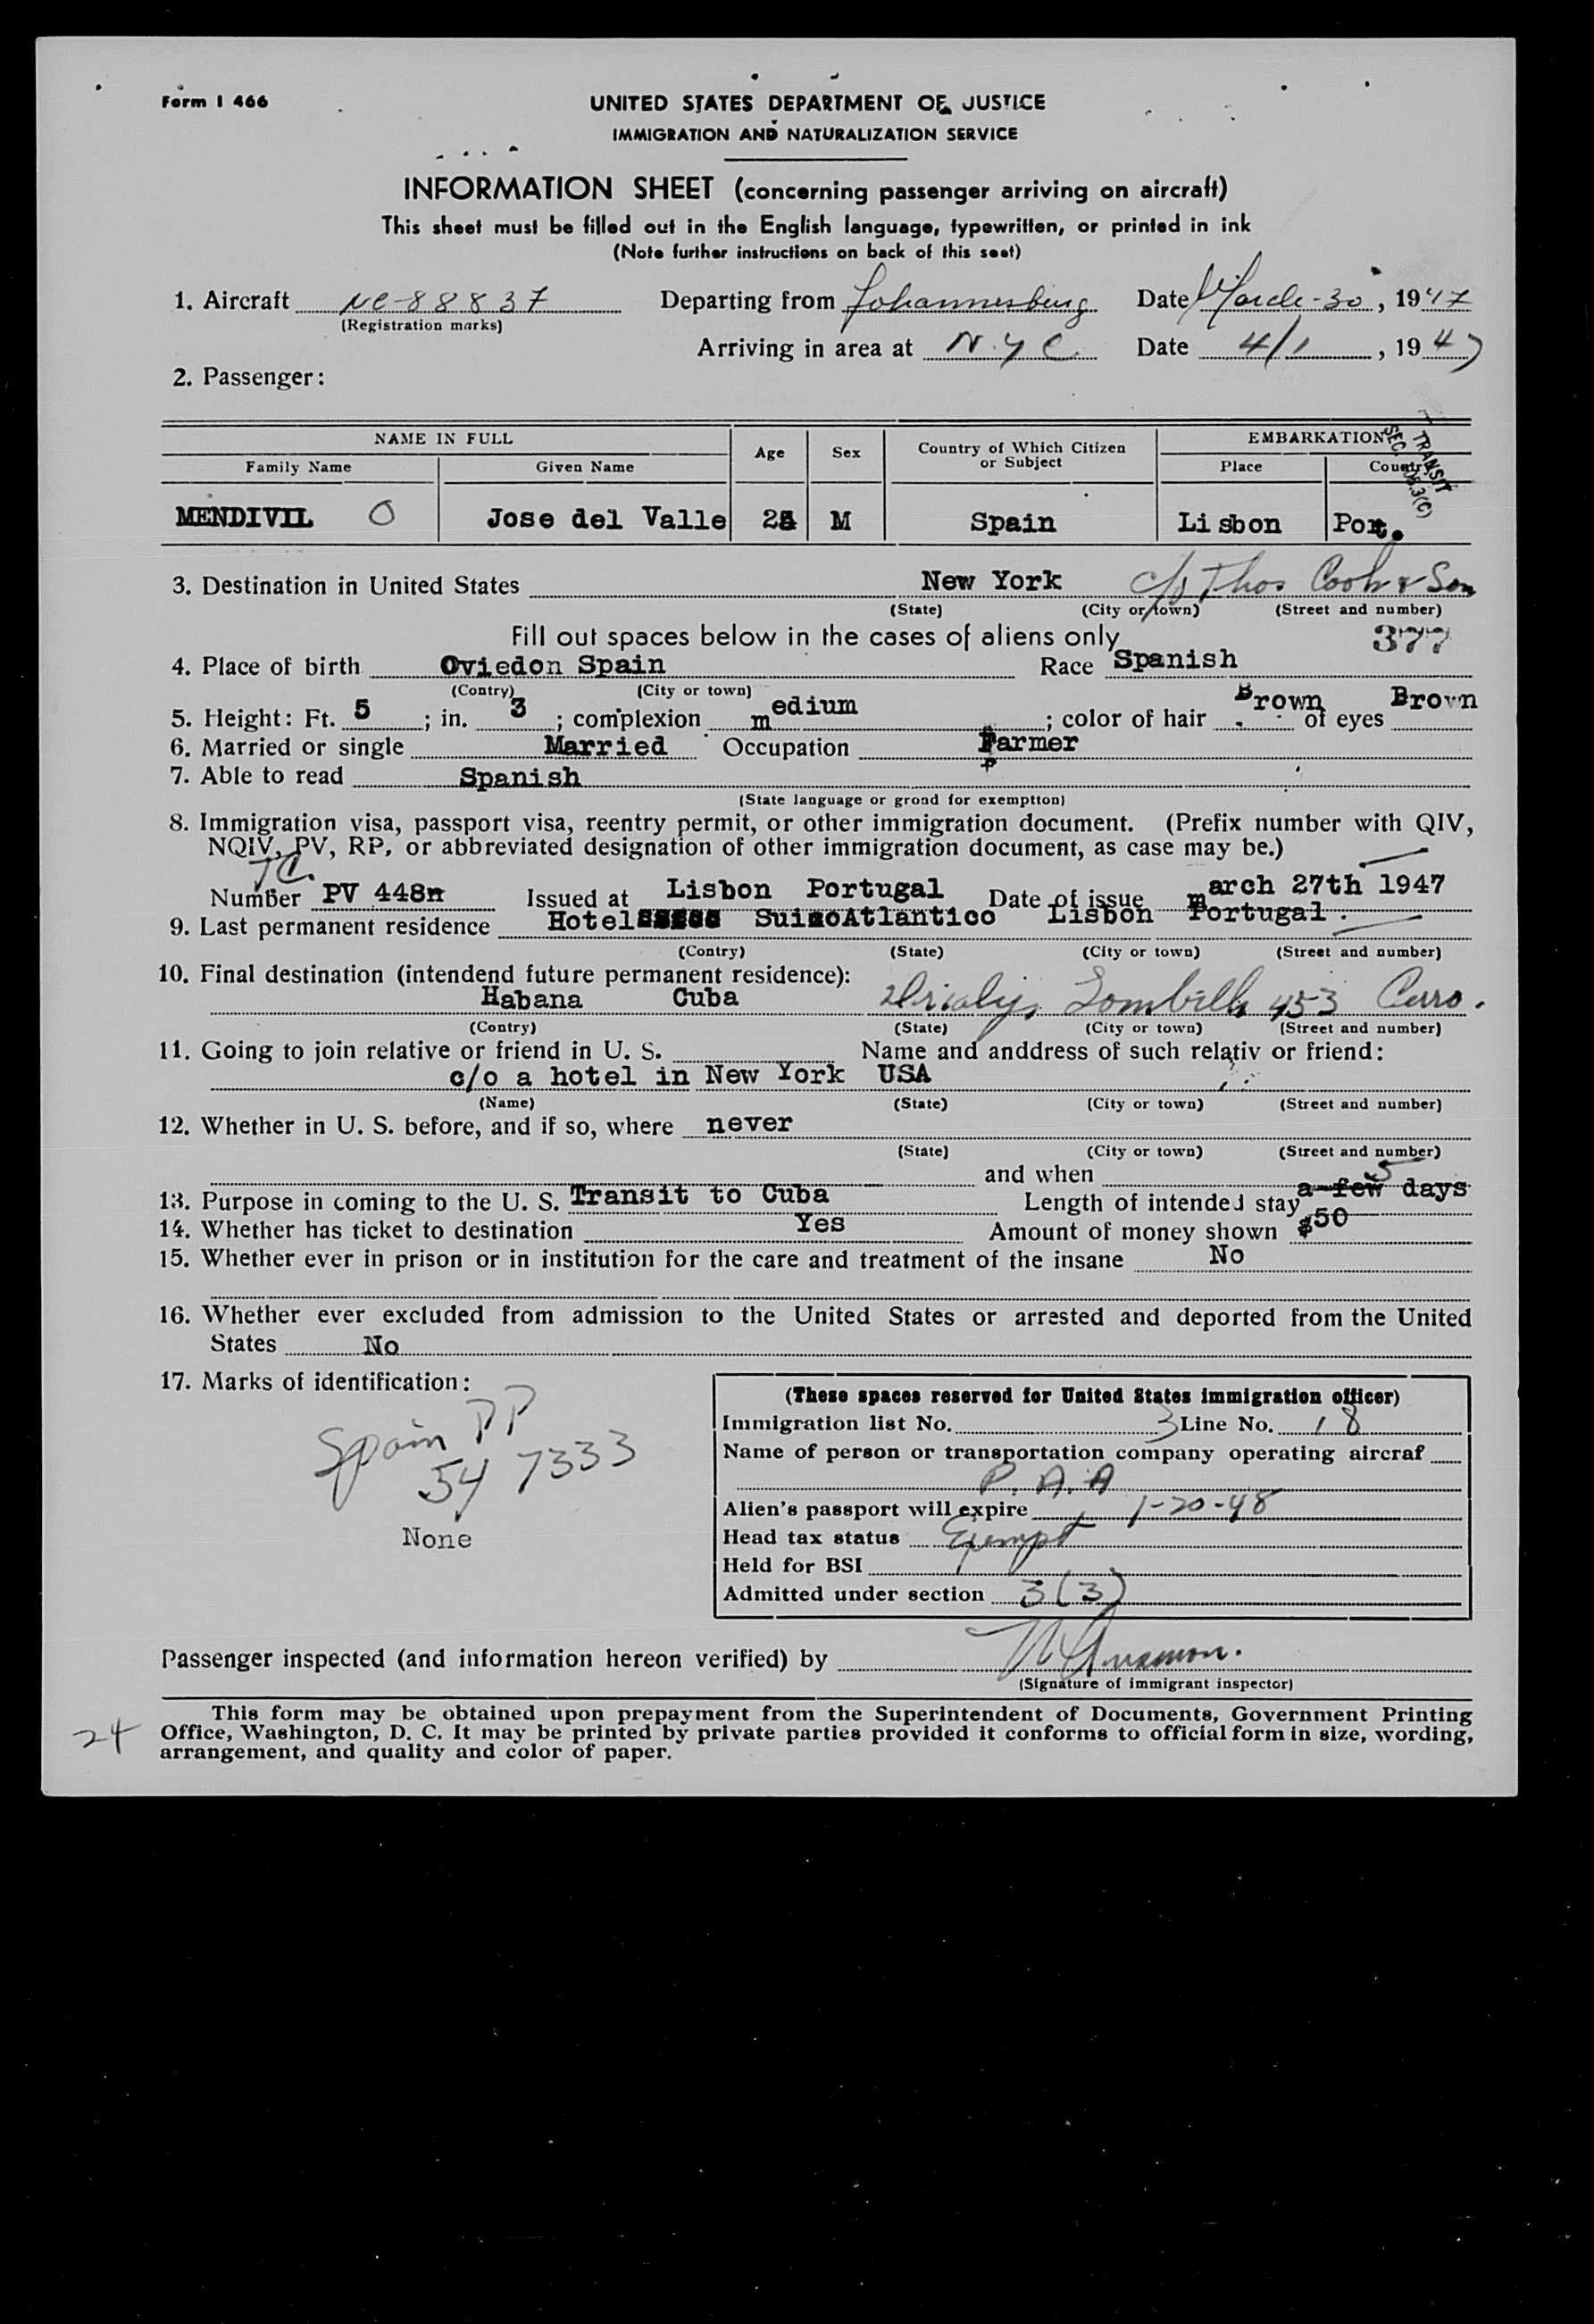 Form I 466
UNITED STATES DEPARTMENT OF JUSTICE
IMMIGRATION AND NATURALIZATION SERVICE
INFORMATION SHEET (concerning passenger arriving on aircraft)
This sheet must be filled out in the English language, typewritten, or printed in ink
(Note further instructions on back of this seet)
1. Aircraft NC-88837 Departing from Johannesburg Date March-30, 1947
(Registration marks)
Arriving in area at N.Y.C. Date 4/1, 1947
2. Passenger:
NAME IN FULL Age Sex Country of Which Citizen or Subject EMBARKATION
Family Name Given Name Place Country
TRANSIT
SEC.
MENDIVIL O Jose del Valle M Spain Lisbon Port.
3. Destination in United States New York c/o Thos Cook & Son
(State) (City or town) (Street and number)
Fill out spaces below in the cases of aliens only 377
4. Place of birth Oviedon Spain Race Spanish
(Contry) (City or town)
5. Height: Ft. 5; in. 3; complexion medium; color of hair Brown of eyes Brown
6. Married or single Married Occupation Farmer
7. Able to read Spanish
(State language or grond for exemptton)
8. Immigration visa, passport visa, reentry permit, or other immigration document. (Prefix number with QIV,
NQIV, PV, RP, or abbreviated designation of other immigration document, as case may be.)
TC.
Number PV 448n Issued at Lisbon Portugal Date of issue march 27th 1947
9. Last permanent residence Hotel SuizoAtlantico Lisbon Portugal.
(Contry) (State) (City or town) (Street and number)
10. Final destination (intendend future permanent residence):
Habana Cuba 453 Cerro.
(Contry) (State) (City or town) (Street and number)
11. Going to join relative or friend in U. S. Name and anddress of such relativ or friend:
c/o a hotel in New York USA
(Name) (State) (City or town) (Street and number)
12. Whether in U. S. before, and if so, where never
(State) (City or town) (Street and number)
and when
13. Purpose in coming to the U. S. Transit to Cuba Length of intended stay a few 5 days
14. Whether has ticket to destination Yes Amount of money shown $50
15. Whether ever in prison or in institution for the care and treatment of the insane No
16. Whether ever excluded from admission to the United States or arrested and deported from the United
States No
17. Marks of identification:
Spain PP
54 7333
None
(These spaces reserved for United States immigration officer)
Immigration list No. 3 Line No. 18
Name of person or transportation company operating aircraf
P.A.A
Alien's passport will expire 1-20-48
Head tax status Exempt
Held for BSI
Admitted under section 3(3)
Passenger inspected (and information hereon verified) by
(Signature of immigrant inspector)
24
This form may be obtained upon prepayment from the Superintendent of Documents, Government Printing
Office, Washington, D. C. It may be printed by private parties provided it conforms to official form in size, wording,
arrangement, and quality and color of paper.